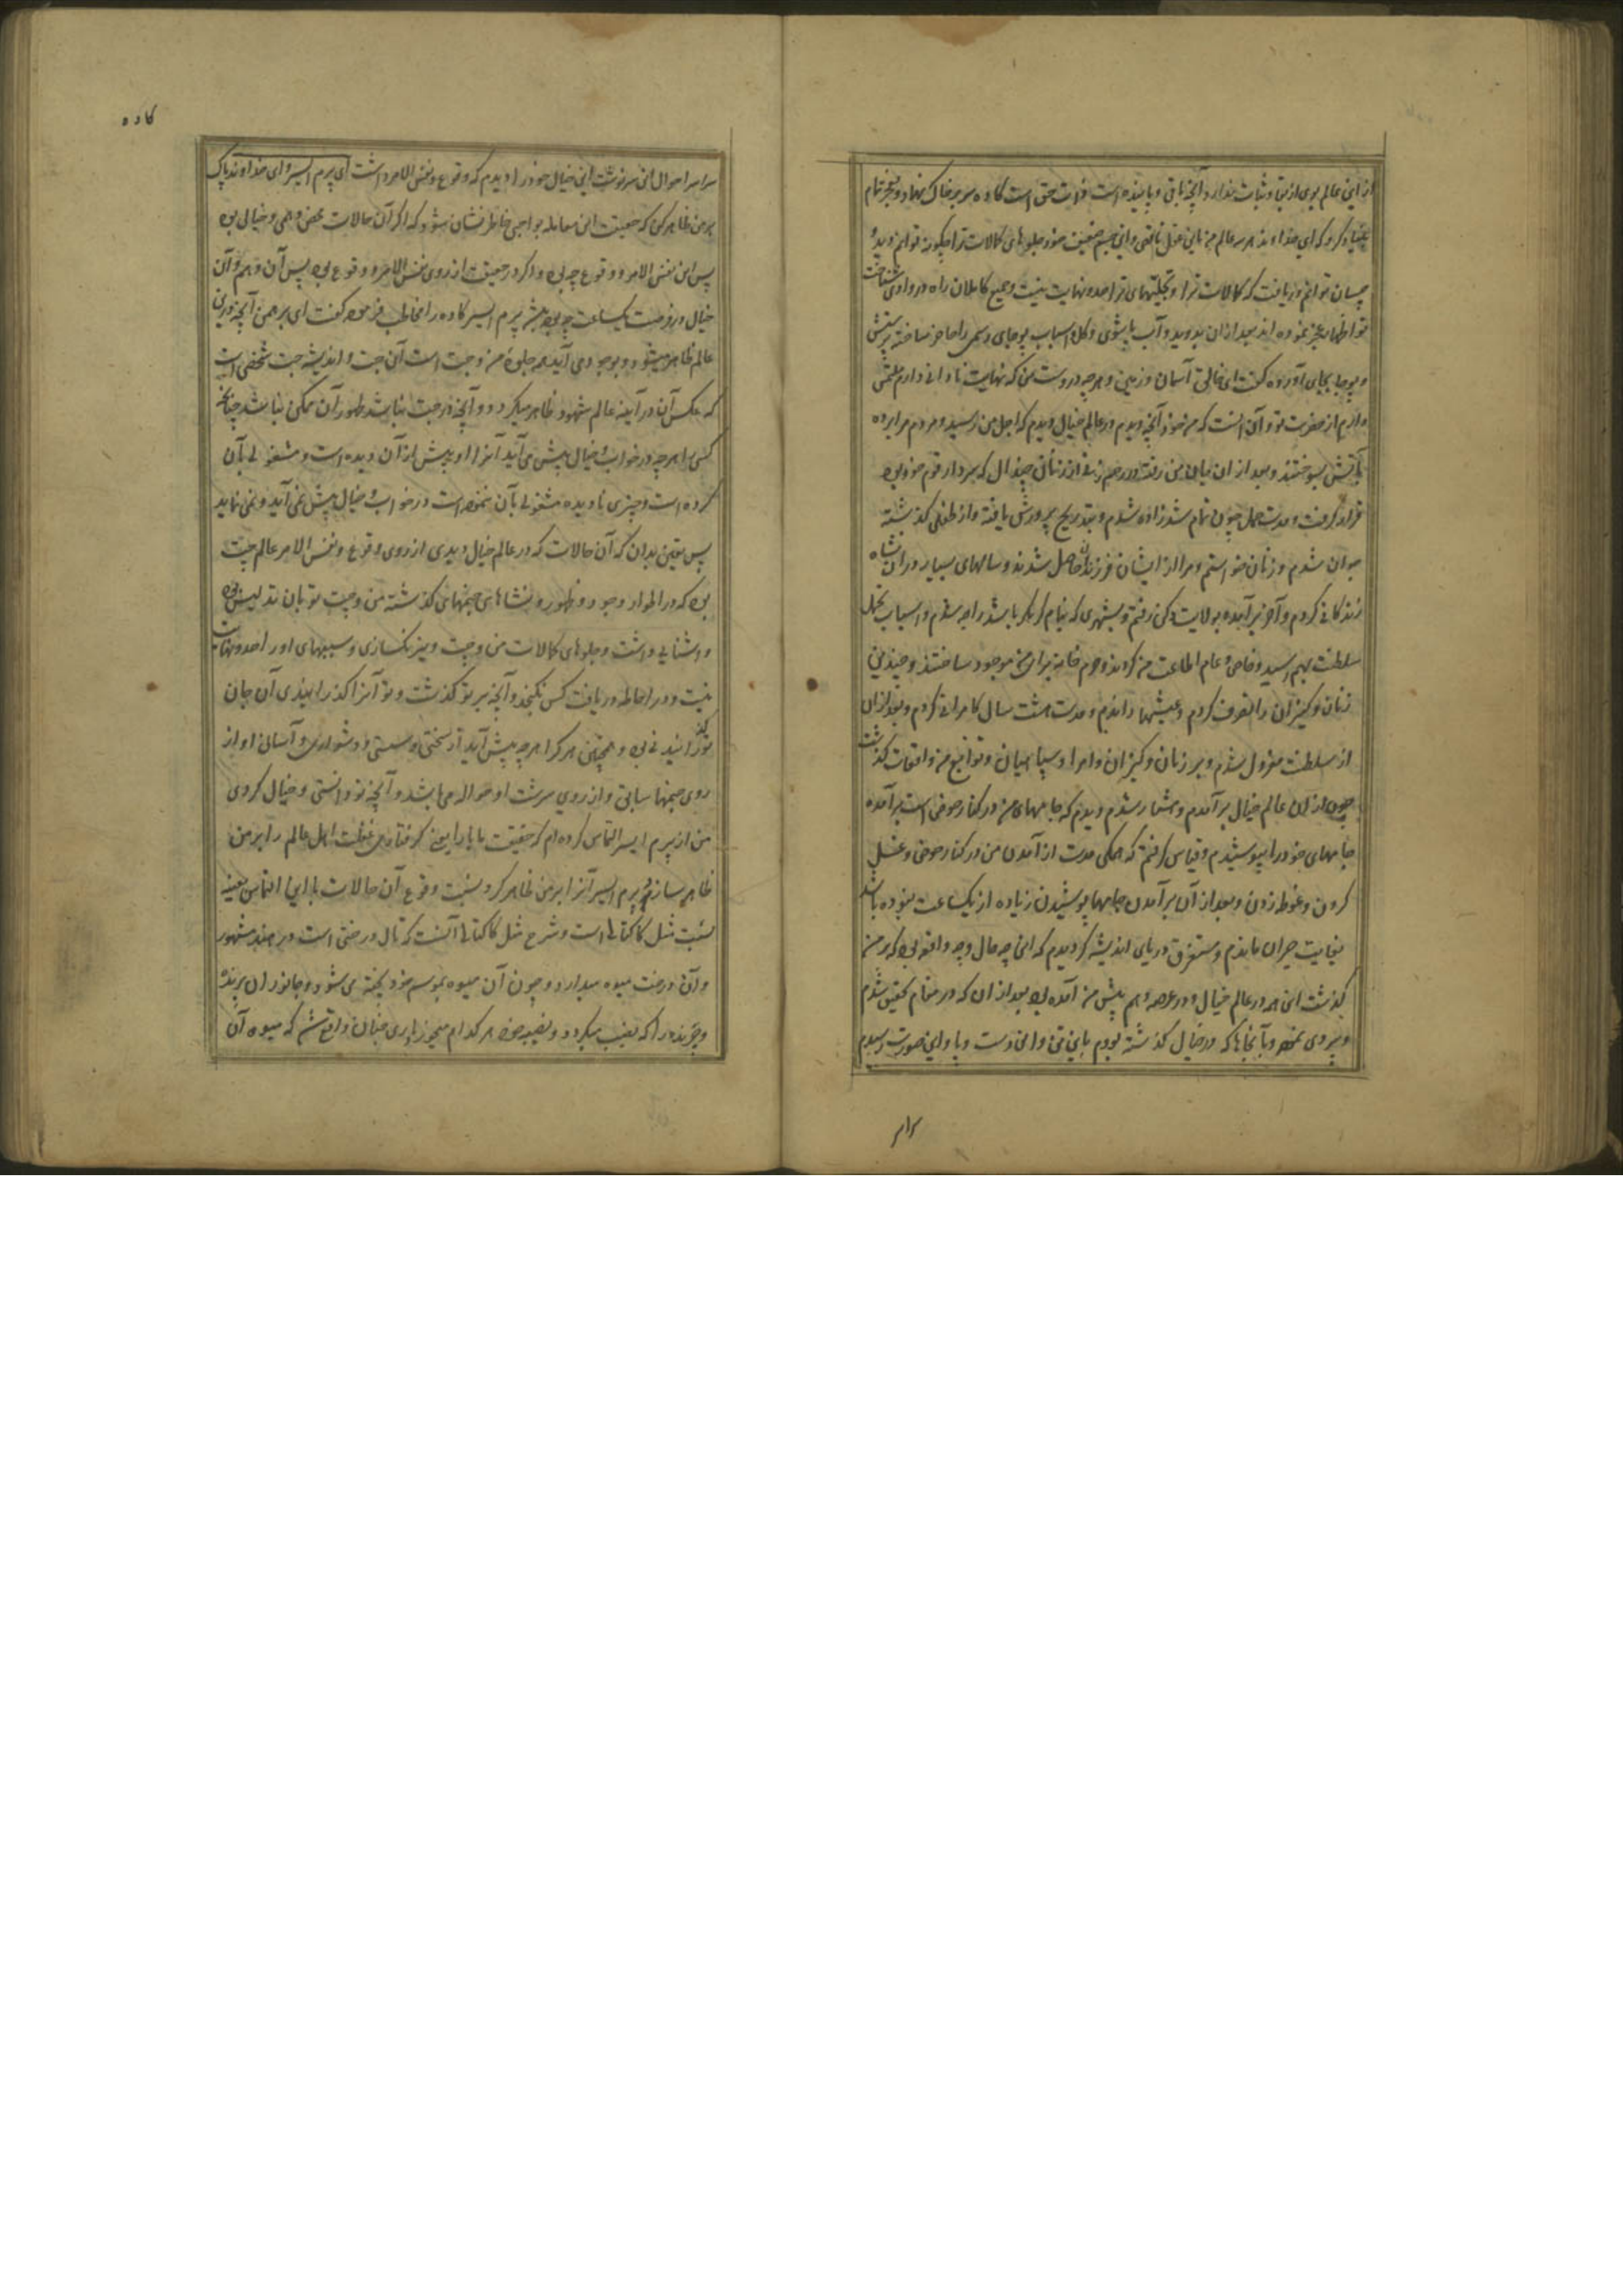 از این عالم بوی از بقا و ثبات ندارد و آنچه باقی و پاینده است ذات حق است کاده سر بر خاک نهاد و بعجز تمام
بنیاد کرد که ای خداوند هر سه عالم من باین عقل ناقص و این جسم ضعیف خود جلوهای کمالات ترا چگونه توانم دید و
چسان توانم دریافت که کمالات ترا و تجلیهای ترا حد و نهایت نیست و جمیع کاملان راه در وادی شناخت
تو اظهار عجز نموده اند بعد ازان بدوید و آب پاشوی و گل و اسباب پوجای رسمی را حاضر ساخته پرستش
و پوجا بجای آورده گفت ای خالق آسمان و زمین و هرچه دروست من که نهایت نادانی دارم ملتمسی
دارم از حضرت تو و آن اینست که من خود آنچه دیدم در عالم خیال دیدم که اجل من رسید و مردم مرا برده
بآتش سوختند و بعد از ان جان من رفته در رحم زنی از زنان چندال که سردار قوم خود بود
قرار گرفت و مدت حمل چون تمام شد زاده شدم و بتدریج پرورش یافته و از طفلی گذشته
جوان شدم و زنان خواستم و مرا از ایشان فرزندان حاصل شدند و سالهای بسیار در ان نشاه
زندگانی کردم و آخر برآمده بولایت دکن رفتم و بشهری که بنام کر باشد راجه شدم و اسباب تجمل
سلطنت بهم رسید و خاص و عام اطاعت من کردند و حرم خانه برای من موجود ساختند و چندین
زنان و کنیزان را تصرف کردم و عیشها راندم و مدت هشت سال کامرانی کردم و بعد ازان
از سلطنت معزول شدم و بر زنان و کنیزان و امرا و سپاهیان و توابع من واقعات گذشت
چون از ان عالم خیال برآمدم و هشیار شدم دیدم که جامهای من در کنار حوض است برآمده
جامهای خود را پوشیدم و قیاس گرفتم که همگی مدت از آمدن من در کنار حوض و غسل
کردن و غوطه زدن و بعد از آن برآمدن جامها پوشیدن زیاده از یکساعت نبوده باشد
بغایت حیران ماندم و مستغرق دریای اندیشه گردیدم که این چه حال و چه واقعه بود که بر من
گذشت این همه در عالم خیال و در عرصه وهم پیش من آمده بود بعد از ان که در مقام تحقیق شدم
و پیروی نموده و بآنجاها که در خیال گذشته بودم باین تن و این دست و پا و این صورت رسیدم
سراسر
سراسر احوال این سرنوشت این خیال خود را دیدم که وقوع و نفس الامر داشت ای پرم ایسر و ای خداوند پاک
بر من ظاهر کن که حقیقت این معامله بواجبی خاطرنشان شود که اگر آن حالات محض وهمی و خیالی بود
پس این نفس الامر و وقوع چه بود و اگر در حقیقت از روی نفس الامر و وقوع بود پس آن وهم و آن
خیال در فرصت یکساعت چه بود پرم ایسر کاده را مخاطب فرموده گفت ای برهمن آنچه درین
عالم ظاهر میشود و بوجود می آید همه جلوه من و چت است آن چت و اندیشه چت شخصی است
که عکس آن در آینه عالم شهود ظاهر میگردد و آنچه در چت نباشد ظهور آن ممکن نباشد چنانکه
کسی را هرچه در خواب و خیال پیش می آید آنرا او پیش از آن دیده است و مشغولی بآن
کرده است و چیزی نادیده مشغولی بآن ننموده است در خواب و خیال پیش نمی آید و نمی نماید
پس یقین بدان که آن حالات که در عالم خیال دیدی از روی وقوع و نفس الامر عالم چت
بود که در اطوار وجود و ظهور و نشاهای جنمهای گذشته من و چت تو بان تدلیس بوده
و آشنایی داشت و جلوهای کمالات من و چت و نیرنگسازی و سببهای او را حد و نهایت
نیست و در احاطه دریافت کس نگنجد و آنچه بر تو گذشت و تو آنرا گذرانیدی آن جان
تو گذرانیدنی بود و همچنین هر کرا هرچه پیش آید از سختی و سستی و دشواری و آسانی او از
روی جنمهای سابق و از روی سرشت او حواله می باشد و آنچه تو دانستی و خیال کردی
من از پرم ایسر التماس کرده ام که حقیقت مایا را یعنی گرفتاری غفلت اهل عالم را بر من
ظاهر سازد و پرم ایسر آنرا بر من ظاهر کرد نسبت وقوع آن حالات با این التماس بعینه
نسبت مثل کاکتالی است و شرح مثل کاکتالی آنست که تال درختی است در هند مشهور
و آن درخت میوه میدارد و چون آن میوه بموسم خود پخته می شود و جانوران پرنده
و چرنده را که نصیب میگردد و نصیبه خود هر کدام میخورند باری چنان واقع شد که میوه آن
کاده